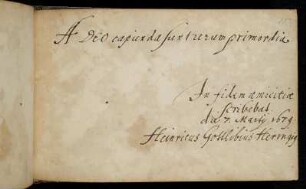 A Deo capiunda sunt rerum primordia
In fidem amicitiæ
scribebat
die 7. Martÿ 1679
Heinricus Gottlibius Hering